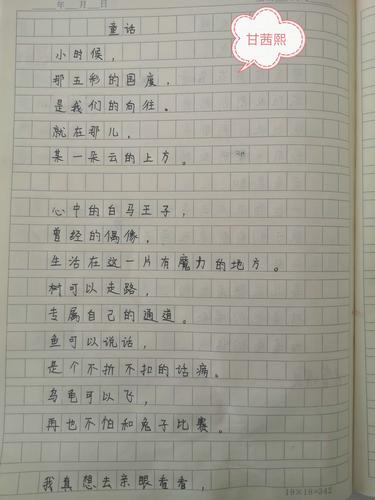 年 月 日
甘茜熙
童话
小时候，
那五彩的国度，
是我们的向往。
就在那儿，
某一朵云的上方。
心中的白马王子，
曾经的偶像，
生活在这一片有魔力的地方。
树可以走路，
专属自己的通道。
鱼可以说话，
是个不折不扣的话痨。
乌龟可以飞，
再也不怕和兔子比赛。
我真想去亲眼看看，
19×18=342